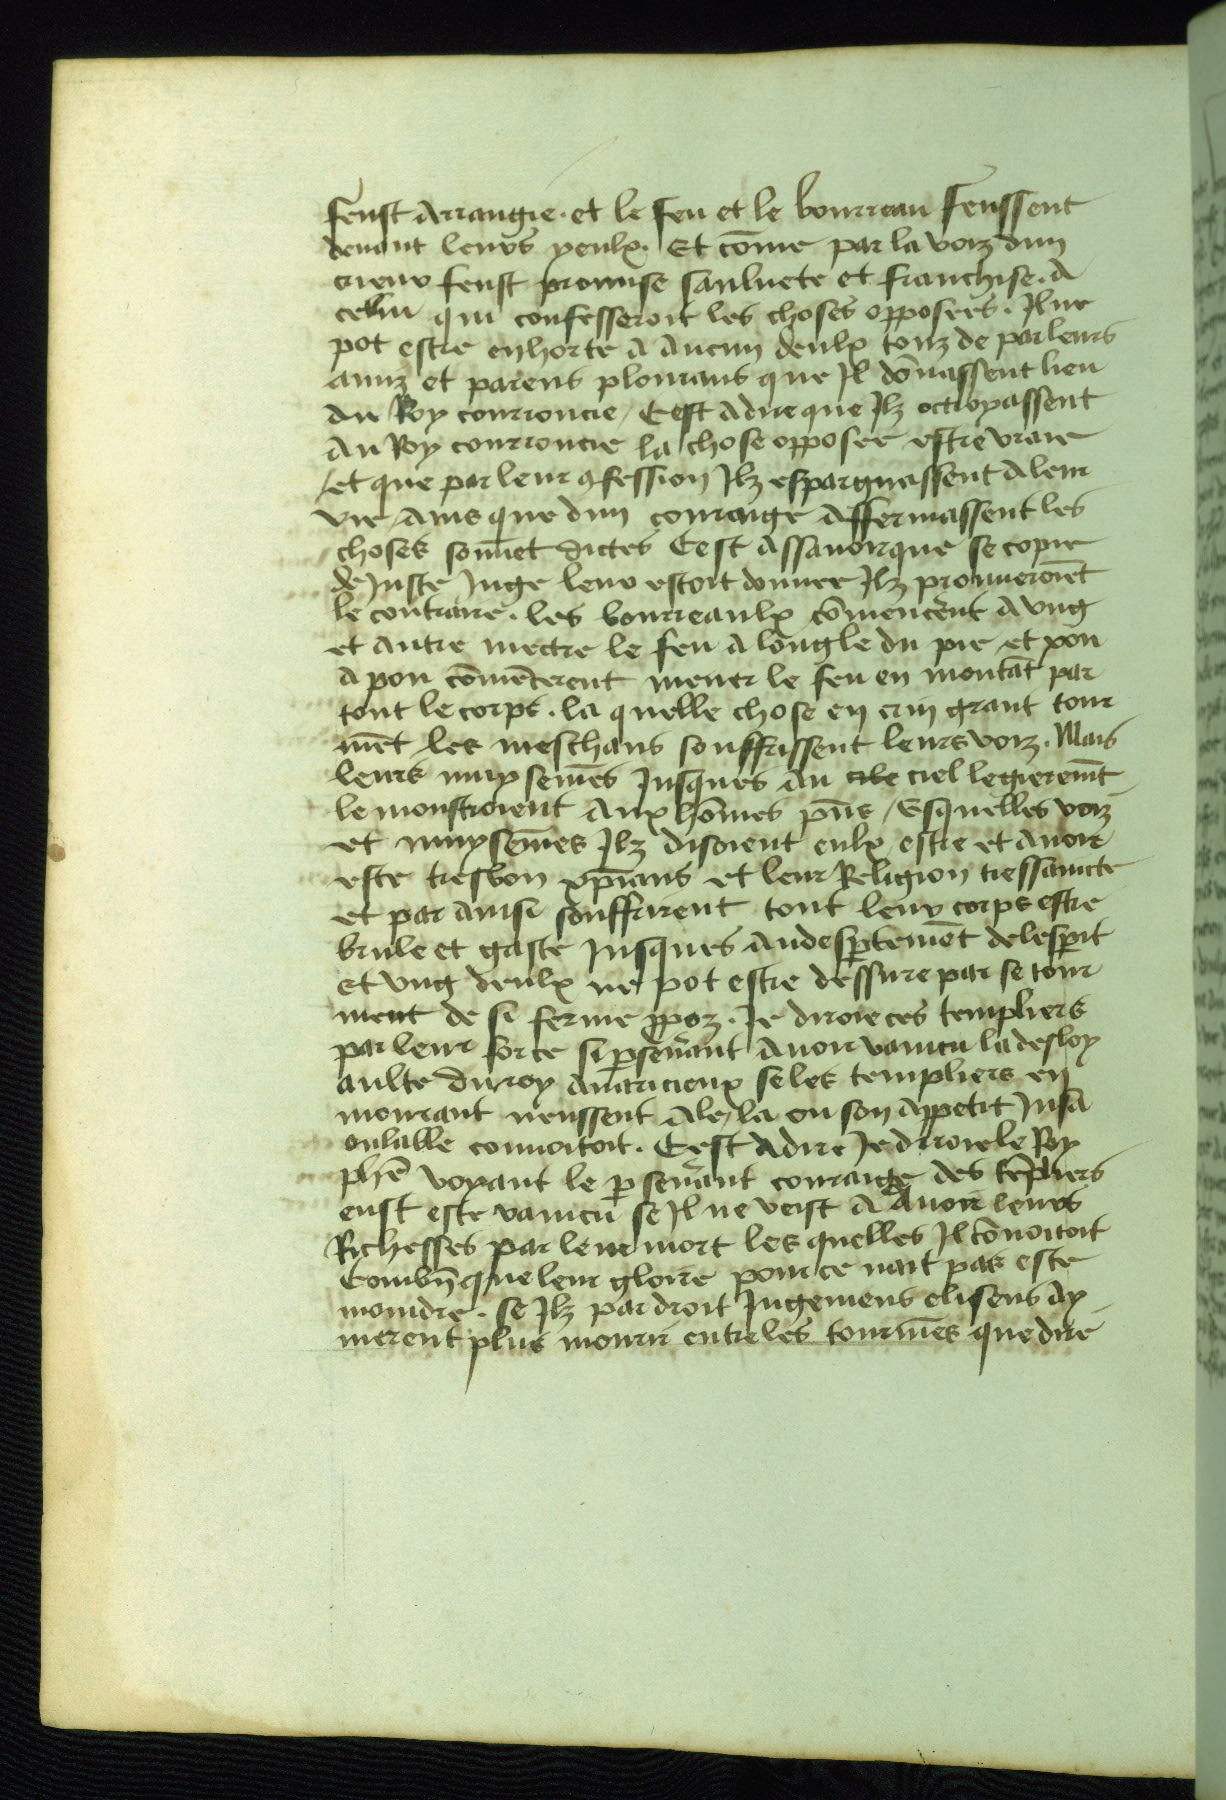 feust arrangie. et le feu et le bourreau feussent
deuant leurs yeulx. Et cōme par la voiz dun
crieur feust promise sauluete et franchise. A
celui qui confesseroit les choses opposees. Il ne
pot estre enhorte a aucun deulx touz de par leurs
amiz et parens plourans que Il dōnassent lieu
du Roy courroucie / Cest adire que Ilz octroyassent
Au Roy courroucie la chose opposee estre vraie
/ et que par leur ꝯfession Ilz espargnassent a leur
vie / Ains que dun couraige Affermassent les
choses souuēt dictes Cest assauoir que se copie
de Juste Juge leur estoit donnee Ilz prouueroiēt
le contraire. les bourreaulx cōmencerent a ung
et autre mectre le feu a longle du pie et pou
a pou cōmēcerent mener le feu en montāt par
tout le corps. la quelle chose en crin grant tour
mēt les meschans souffrissent leurs voiz. Mais
leurs muysemēs Jusques au ciel legieremēt
le monstroient Aux hōmes pn̄s / Esquelles voiz
et muysemēs Ilz disoient eulx estre et auoir
este tresbon xp̄ians et leur Religion tressaincte
et par ainsi souffrirent tout leur corps estre
brule et gaste Jusques au desptement de lesperit
Et ung deulx ne pot estre dessure par se tour
ment de si ferme ꝓpoz. Je diroie ces templiers
par leur force si ꝑseuerant Auoir vaincu la desloy
aulte du roy auaricieux se les templiers en
mourant neussent Ale / la ou son appetit Insa
oulable conuoitoit. Cest adire Je diroie le Roy
phē voyant le ꝑseuerant couraige des tēpliers
eust este vaincu se Il ne veist A Auoir leurs
Richesses par leur mort les quelles Il cōuoitoit
Combiē que leur gloire pour ce nait pas este
moindre. se Ilz par droit Jugemens elisens Ay
merent plus mourir entre les tourmēs que dire